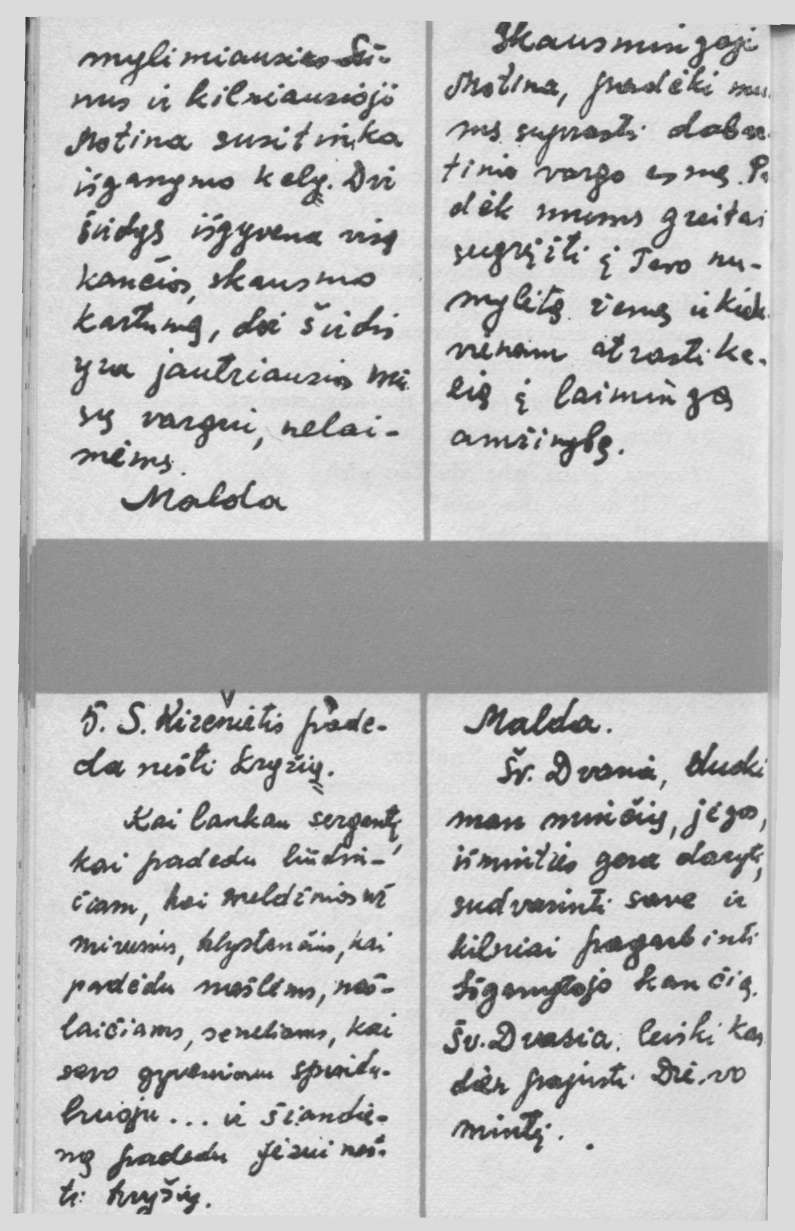 mylimiausias Sū-
nus ir kilniausioji
Motina susitinka
išganymo kely. Dvi
širdys išgyvena visą
kančios, skausmo
kartumą, dvi širdis
yra jautriausios mū
sų vargui, nelai-
mėms.
Malda
Skausmingoji
Motina, padėki mu
ms suprasti dabar
tinio vargo esmę. Pa
dėk mums greitai
sugrįžti į Tavo nu-
mylitą žemę ir kiek
vienam atrasti ke-
lią į laimingą
amžinybę.
5. S. Kirenietis pade-
da nešti kryžių.
Kai lankau sergantį,
kai padedu liūdin-
čiam, kai meldžiuos už
mirusius, klystančius, kai
padėdu našlėms, naš-
laičiams, seneliams, kai
savo gyvenimu spindu-
liuoju... ir šiandie-
ną padedu Jėzui neš-
ti kryžių.
Malda.
Šv. Dvasia, duoki
man minčių, jėgos,
išminties gera daryti,
sudvasinti save ir
kilniai pagarbinti
Išganytojo kančią.
Šv. Dvasia, leiski kas
dien pajusti Dievo
mintį.